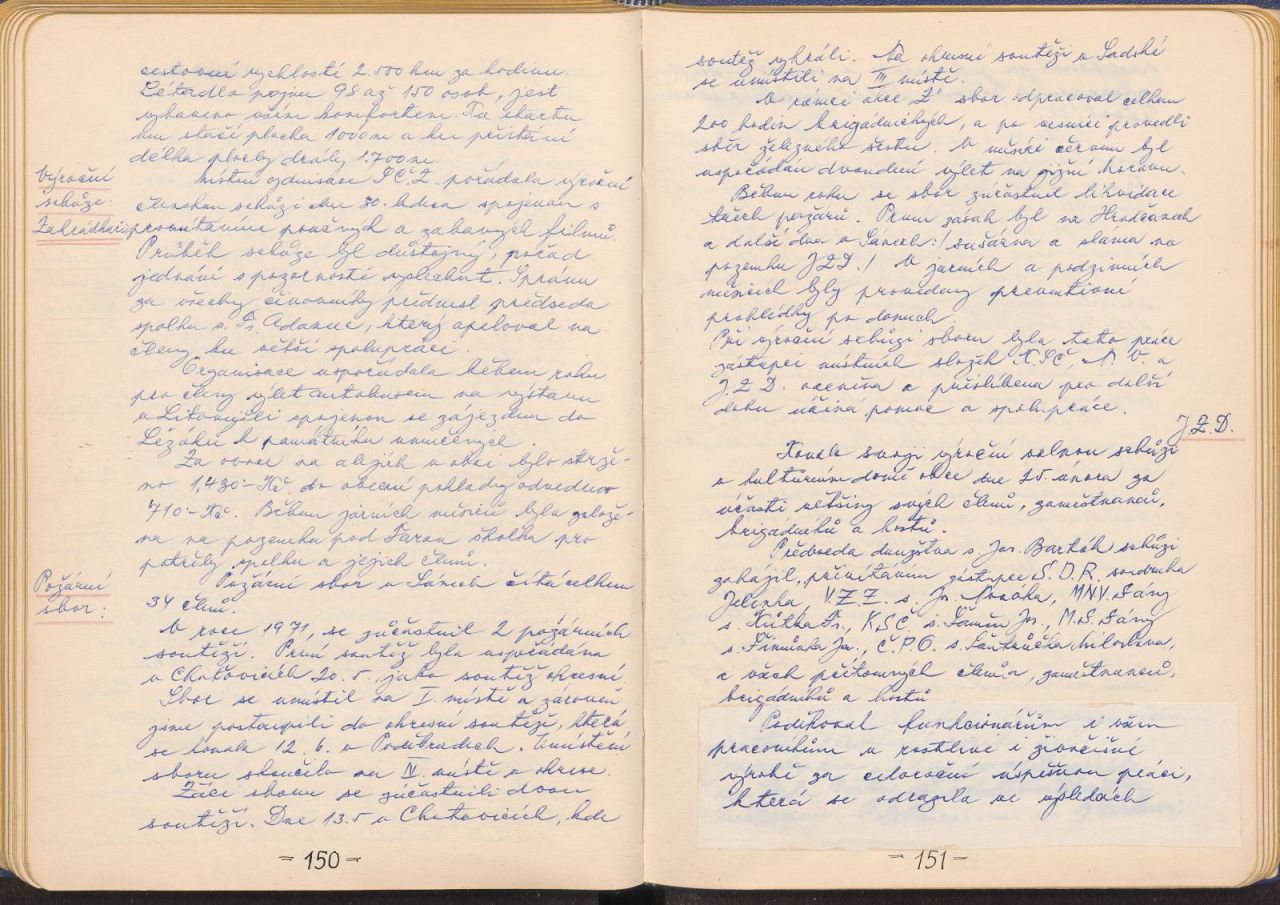 cestovní rychlostí 2.500 km za hodinu.
Létadlo pojme 98 až 150 osob, jest
vybaveno vším komfortem. Ku startu
mu stačí plocha 1000 m a ku přistání
délka plochy dráhy 1.700 m.
Výroční
schůze:
Zahrádkáři
Místní organisace Č.Z. pořádala výroční
členskou schůzi dne 30. ledna spojenou s
promítáním poučných a zábavných filmů.
Průběh schůze byl důstojný, pořad
jednání s pozorností vyslechnut. Zprávu
za všechny činovníky přednesl předseda
spolku s. Fr. Adamec, který apeloval na
členy ku větší spolupráci.
Organisace uspořádala během roku
pro členy výlet autobusem na výstavu
v Litomyšli spojenou se zájezdem do
Ležáků k památníku umučených.
Za ovoce na alejích v obci bylo strže-
no 1,430·- Kčs do obecní pokladny odvedeno
710·- Kčs. Během jarních měsíců byla založe-
na na pozemku pod Farou školka pro
potřeby spolku a jejich členů.
Požární
sbor:
Požární sbor v Sánech čítá celkem
34 členů.
V roce 1971, se zúčastnil 2 požárních
soutěží. První soutěž byla uspořádána
v Choťovicích 20. 5. jako soutěž okresní.
Sbor se umístil na I. místě a zároveň
jsme postoupili do okresní soutěže, která
se konala 12. 6. v Poděbradech. Umístění
sboru skončilo na IV. místě v okrese.
Žáci sboru se zúčastnili dvou
soutěží. Dne 13.5 v Choťovicích, kde
- 150 -
soutěž vyhráli. Na okresní soutěži v Sadské
se umístili na III místě.
V rámci akce "Z" sbor odpracoval celkem
200 hodin brigádnických, a po vesnici provedli
sběr železného šrotu. V měsíci červnu byl
uspořádán dvoudenní výlet na Jizerské horám.
Během roku se sbor zúčastnil likvidace
třech požárů. První zásah byl na Hradčanech
a další dva v Sánech: / sušárna a sláma na
pozemku JZD. / V jarních a podzimních
měsících byly provedeny preventivní
prohlídky po domech.
Při výroční schůzi sboru byla tato práce
zástupci místních složek KSČ, N. V. a
J.Z.D. oceněna a přislíbena pro další
dobu účinná pomoc a spolupráce.
J.Z.D.
Konalo svoji výroční valnou schůzi
v kulturním domě obce dne 25. února za
účasti většiny svých členů, zaměstnanců,
brigádníků a hostů.
Předseda družstva s. Jar. Barták schůzi
zahájil, přivítáním zástupce S.D.R. soudruha
Jelínka, V.Z.Z. s. Jr. Nováka, MNV. Sány
s. Kůtka Fr., KSČ s. Jr., M.S. Sány
s. Šimůnka Jar., Č.P.O. s. Miloslava,
a všech přítomných členů, zaměstnanců,
brigádníků a hostů
Poděkoval funkcionářům i všem
pracovníkům v rostlinné i živočišné
výrobě za celoroční úspěšnou práci,
která se odrazila ve výsledcích
- 151 -